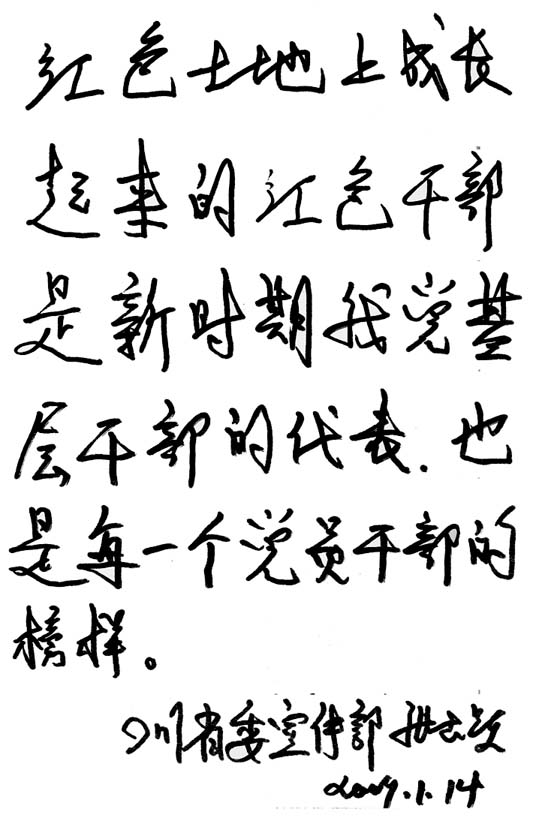 红色土地上成长
起来的红色干部
是新时期我党基
层干部的代表.也
是每一个党员干部的
榜样。
四川省委宣传部
2009.1.14